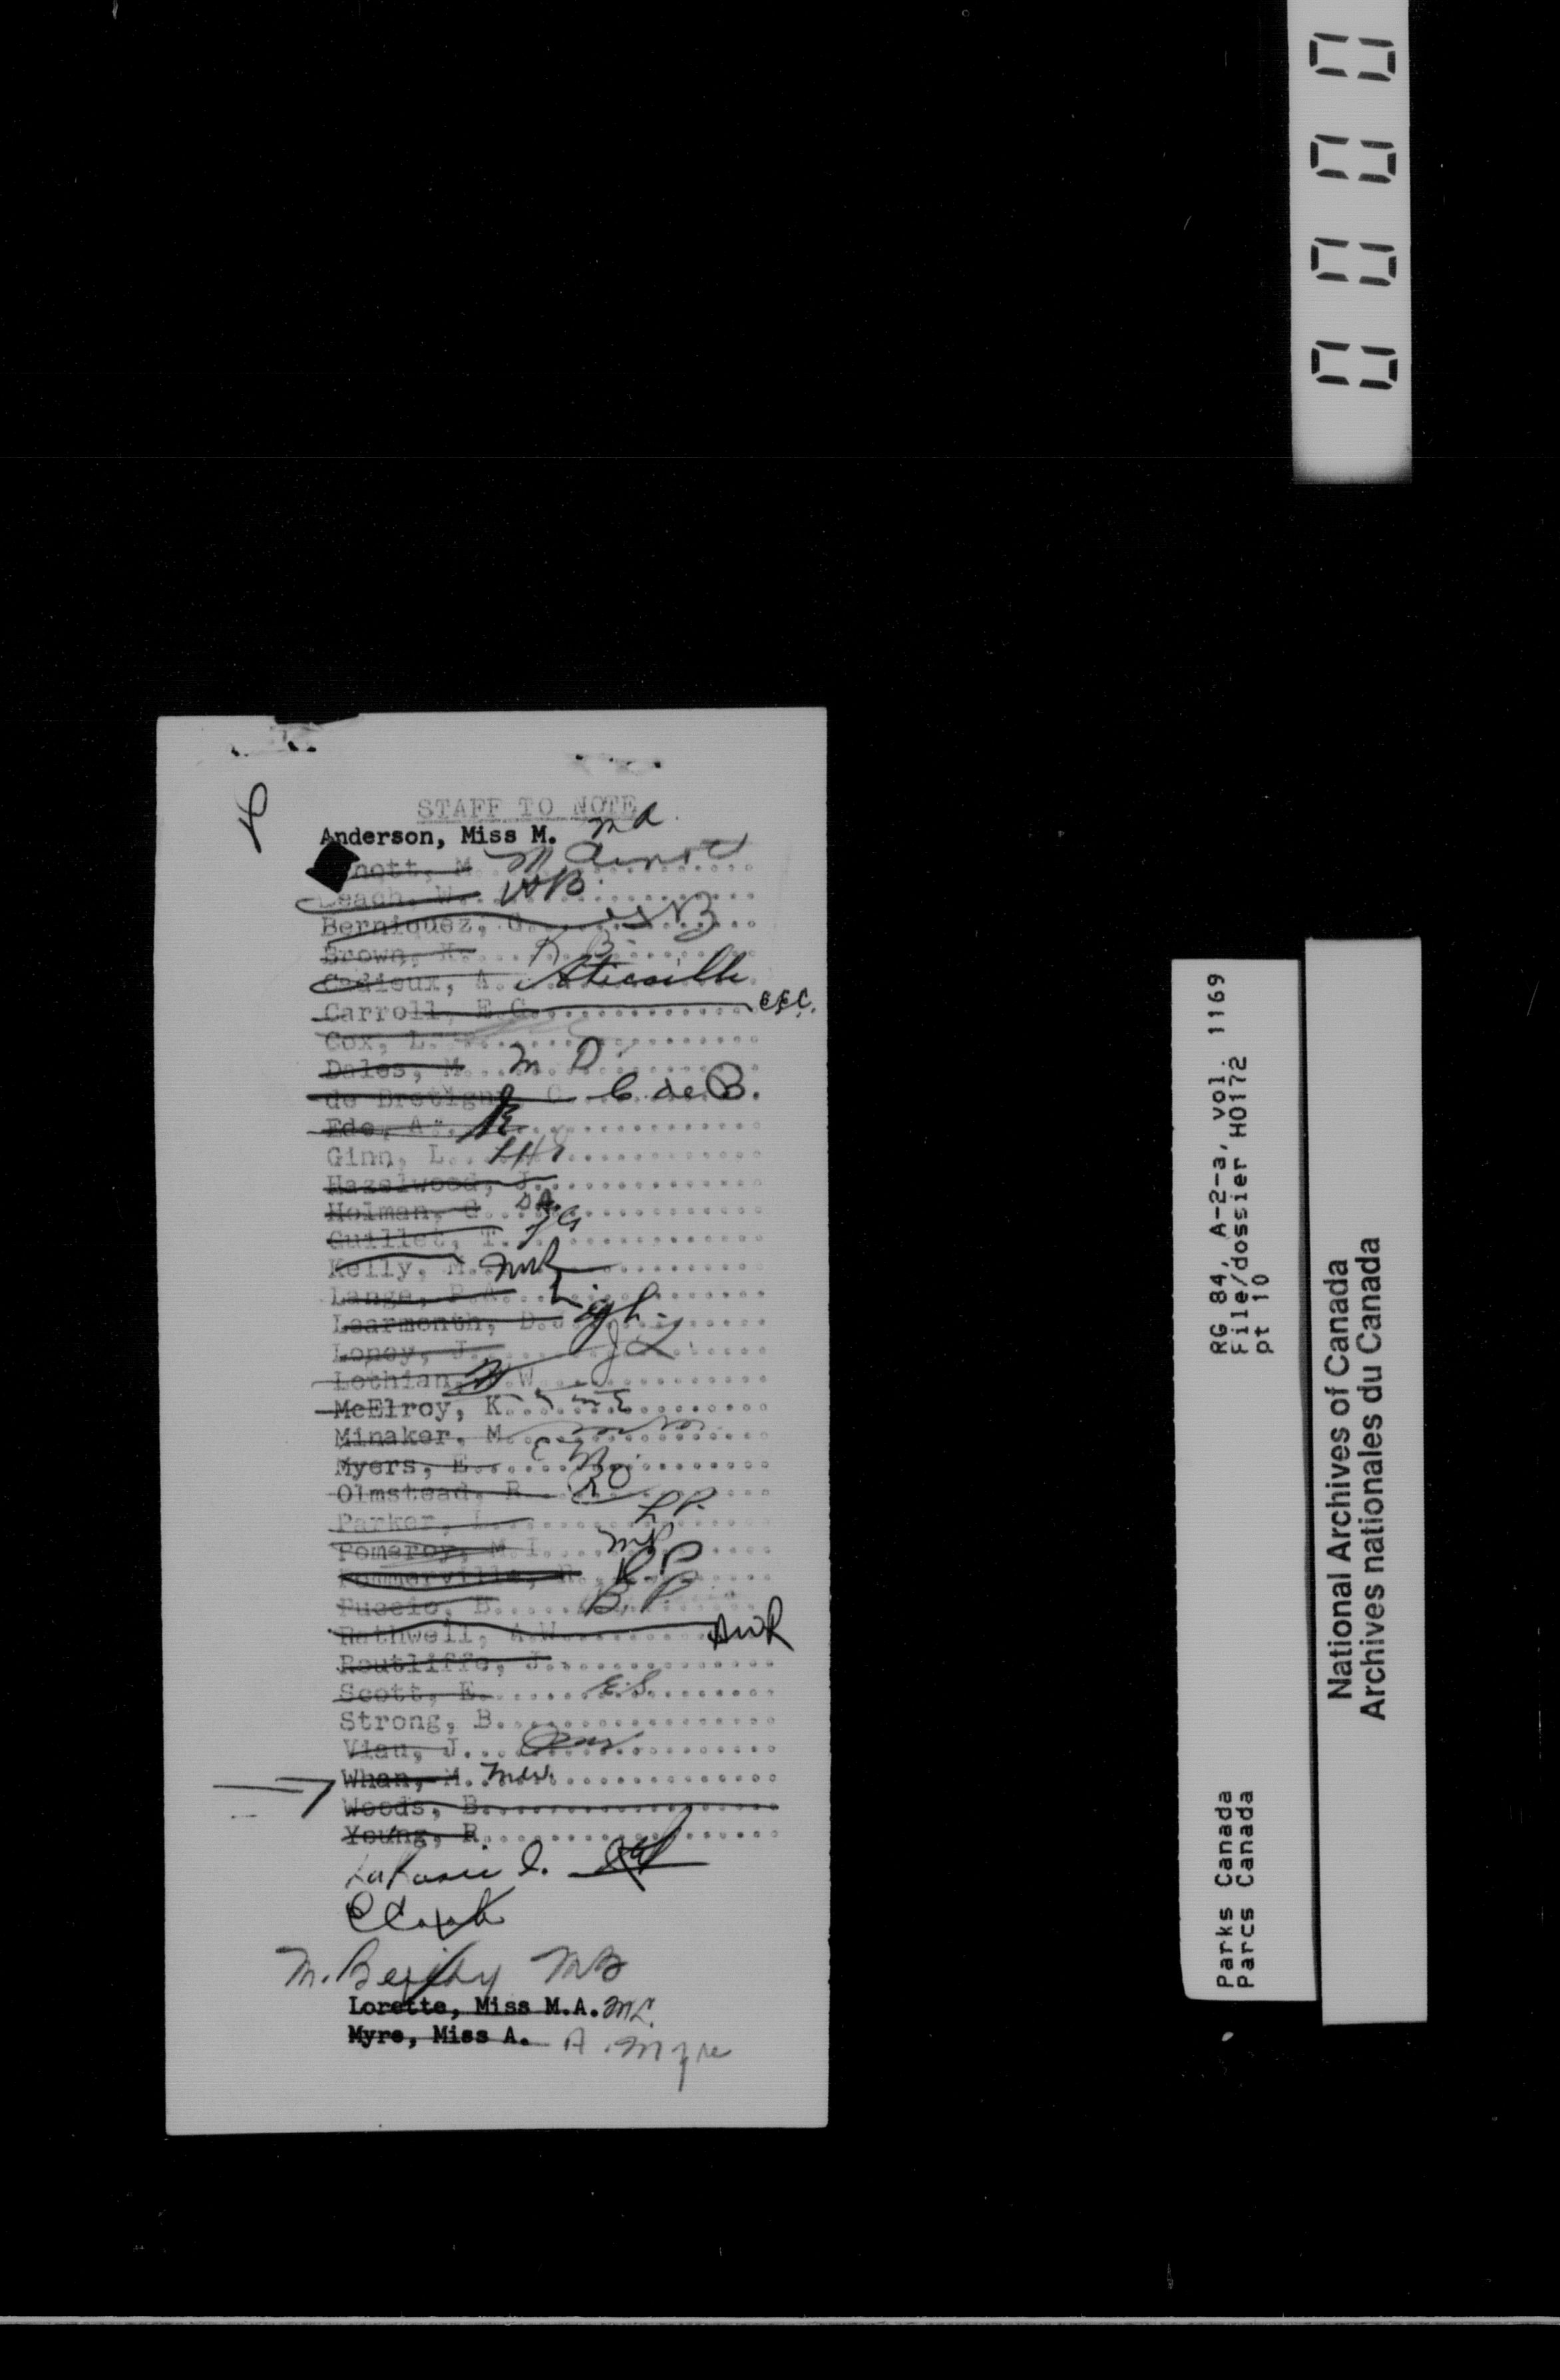 STAFF TO NOTE
Anderson, Miss M. MA
nott, M. M Arnott
Beach, W. WB
Berniquez, G. GB
Brown, K. K B
Cadieux, A.
Carroll, E.G. EGC.
Cox, L.
Dales, M. M D
de Bretigny, C. C de B.
Ede, A.
Ginn, L.
Hazelwood, J.
Holman, G.
Guillet, T. TG
Kelly, M. MK
Lange, P.A. L
Learmonth, D.J.
Loney, J. JL
Lothian, W.
McElroy, K.
Minaker, M.
Myers, E. EM
Olmstead, R. RO
Parker, L. LP.
Pomeroy, M.I. MP
Pommerville, R. R.P
Puccio, B. B.P.
Rathwell, A.W. AWR
Routliffe, J.
Scott, E. E.S.
Strong, B.
Viau, J.
Whan, M. MW
Woods, B.
Young, R.
M. MB
Lorette, Miss M.A. ML.
Myre, Miss A. A. Myre
0000
RG 84, A-2-a, vol. 1169
File/dossier H0172
pt 10
Parks Canada
Parcs Canada
National Archives of Canada
Archives nationales du Canada